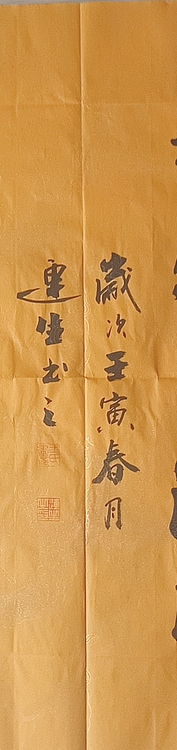 歲次壬寅春月
連生书之